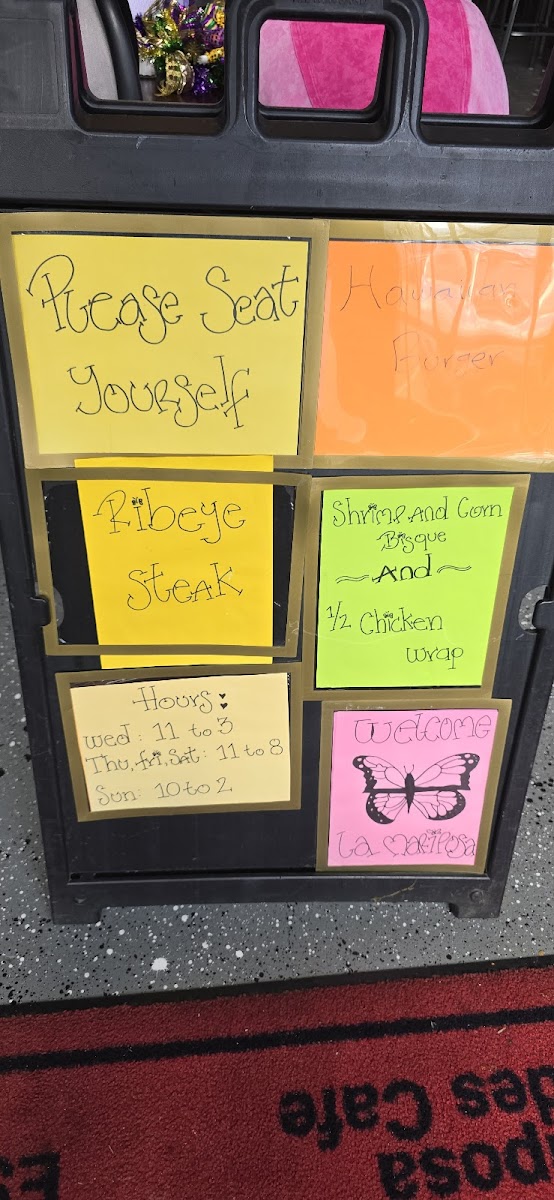 Please Seat
Yourself
Hawaiian
Burger
Ribeye
Steak
Shrimp And Corn
Bisque
~And~
1/2 Chicken
wrap
Hours:
Wed: 11 to 3
Thu, fri, Sat: 11 to 8
Sun: 10 to 2
Welcome
La Mariposa
posa
des Cafe
Es